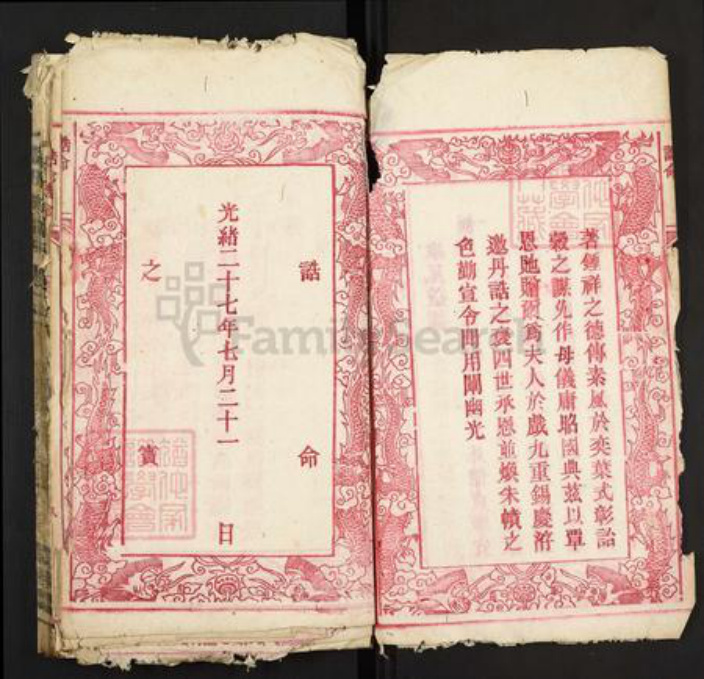 著鍾祥之德傳素風於奕葉式彰詒
穀之謀先作母儀庸昭國典茲以覃
恩貤贈爾為夫人於戲九重錫慶洊
邀丹誥之褒四世承恩並煥朱幩之
色渤宣令聞用闡幽光
誥命
光緒二十七年七月二十一日
之寶
FamilySearch